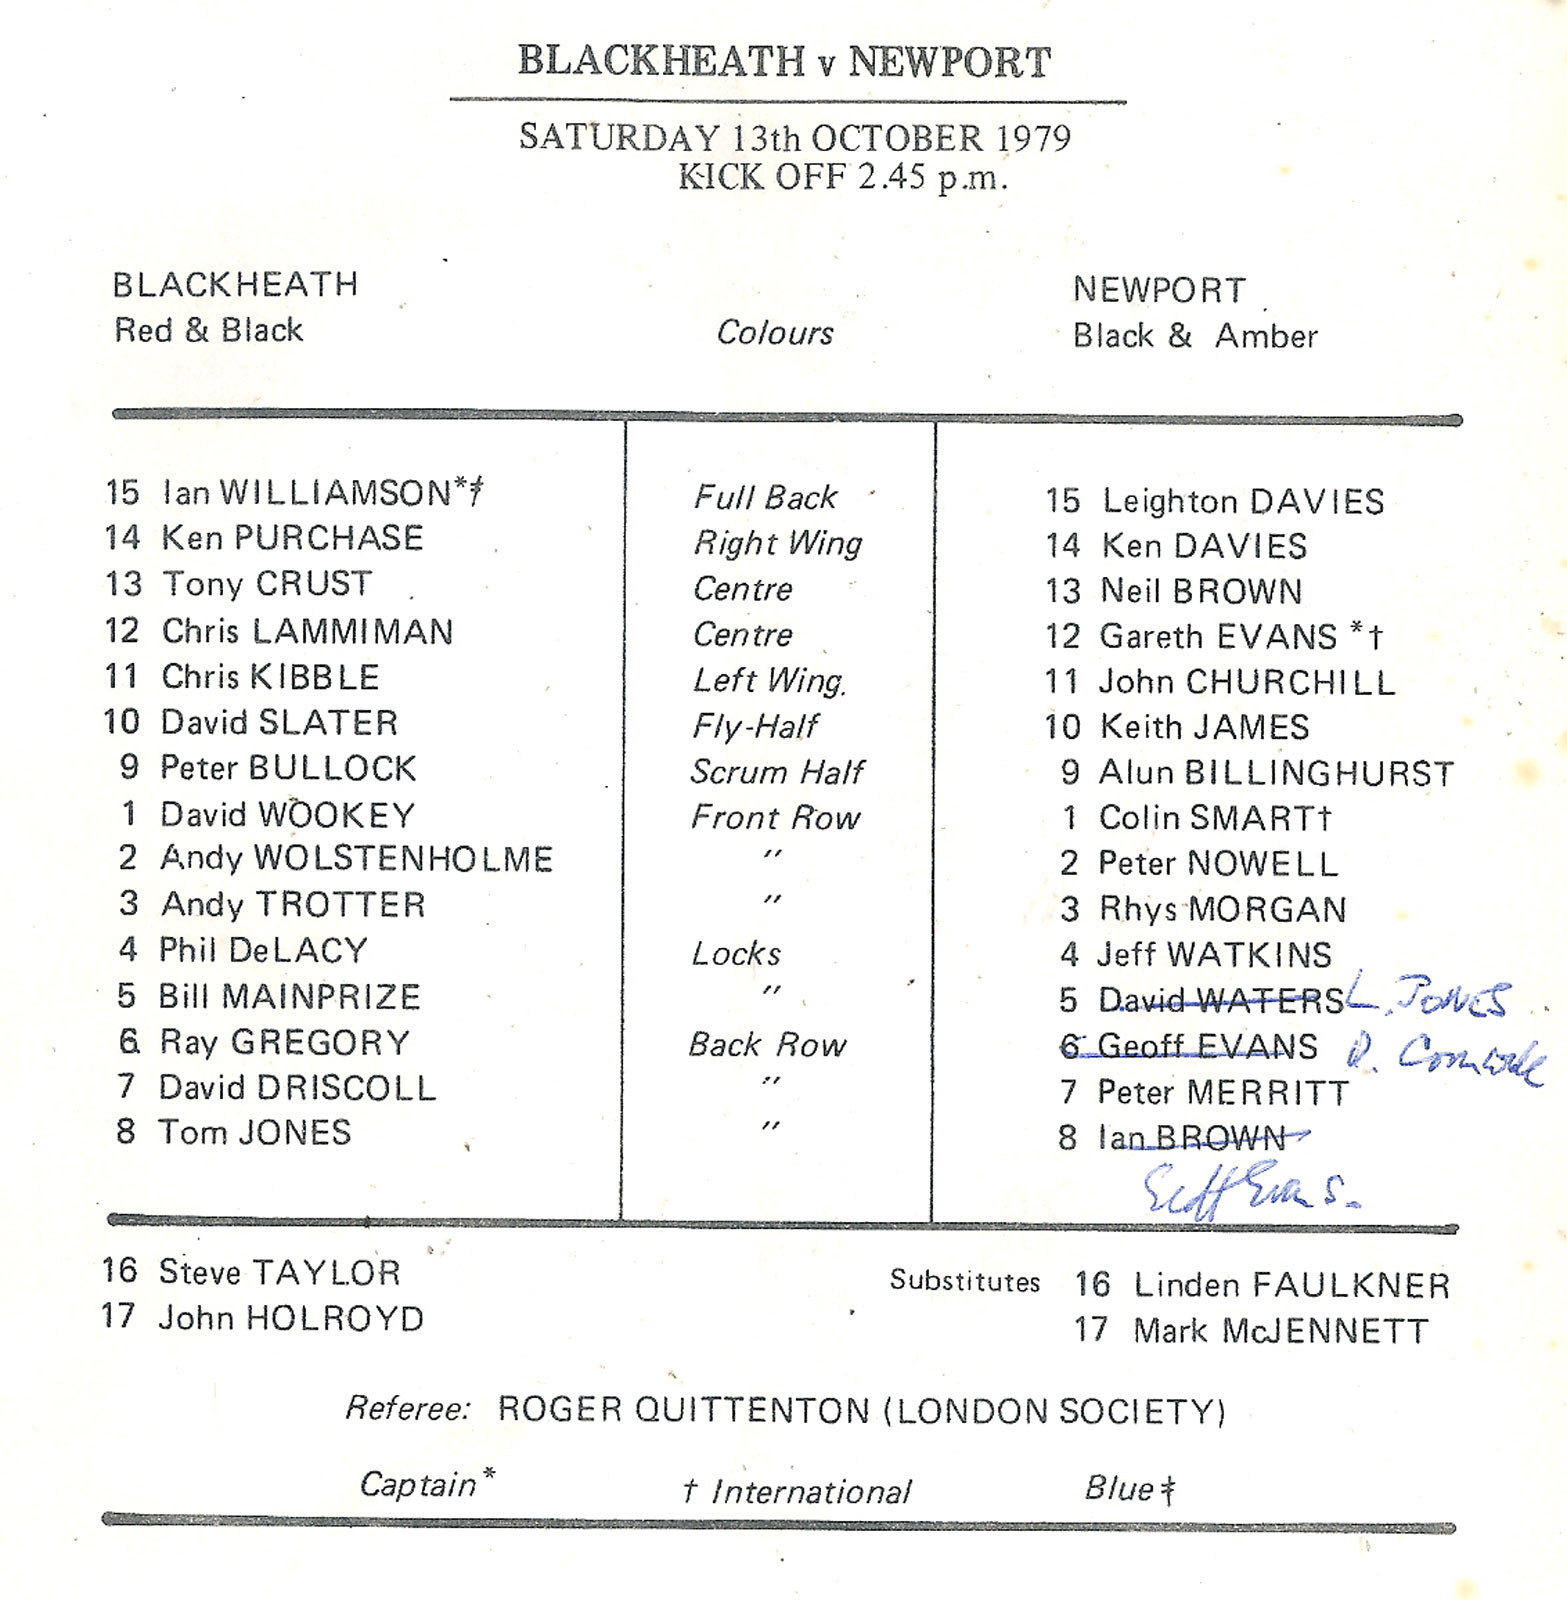 BLACKHEATH v NEWPORT
SATURDAY 13th OCTOBER 1979
KICK OFF 2.45 p.m.
BLACKHEATH NEWPORT
Red & Black Colours Black & Amber
15 Ian WILLIAMSON*‡ Full Back 15 Leighton DAVIES
14 Ken PURCHASE Right Wing 14 Ken DAVIES
13 Tony CRUST Centre 13 Neil BROWN
12 Chris LAMMIMAN Centre 12 Gareth EVANS *†
11 Chris KIBBLE Left Wing. 11 John CHURCHILL
10 David SLATER Fly-Half 10 Keith JAMES
9 Peter BULLOCK Scrum Half 9 Alun BILLINGHURST
1 David WOOKEY Front Row 1 Colin SMART†
2 Andy WOLSTENHOLME " 2 Peter NOWELL
3 Andy TROTTER " 3 Rhys MORGAN
4 Phil DeLACY Locks 4 Jeff WATKINS
5 Bill MAINPRIZE " 5 David WATERS L. JONES
6 Ray GREGORY Back Row 6 Geoff EVANS D. Cornwall
7 David DRISCOLL " 7 Peter MERRITT
8 Tom JONES " 8 Ian BROWN
Geoff Evans.
16 Steve TAYLOR Substitutes 16 Linden FAULKNER
17 John HOLROYD 17 Mark McJENNETT
Referee: ROGER QUITTENTON (LONDON SOCIETY)
Captain* † International Blue‡